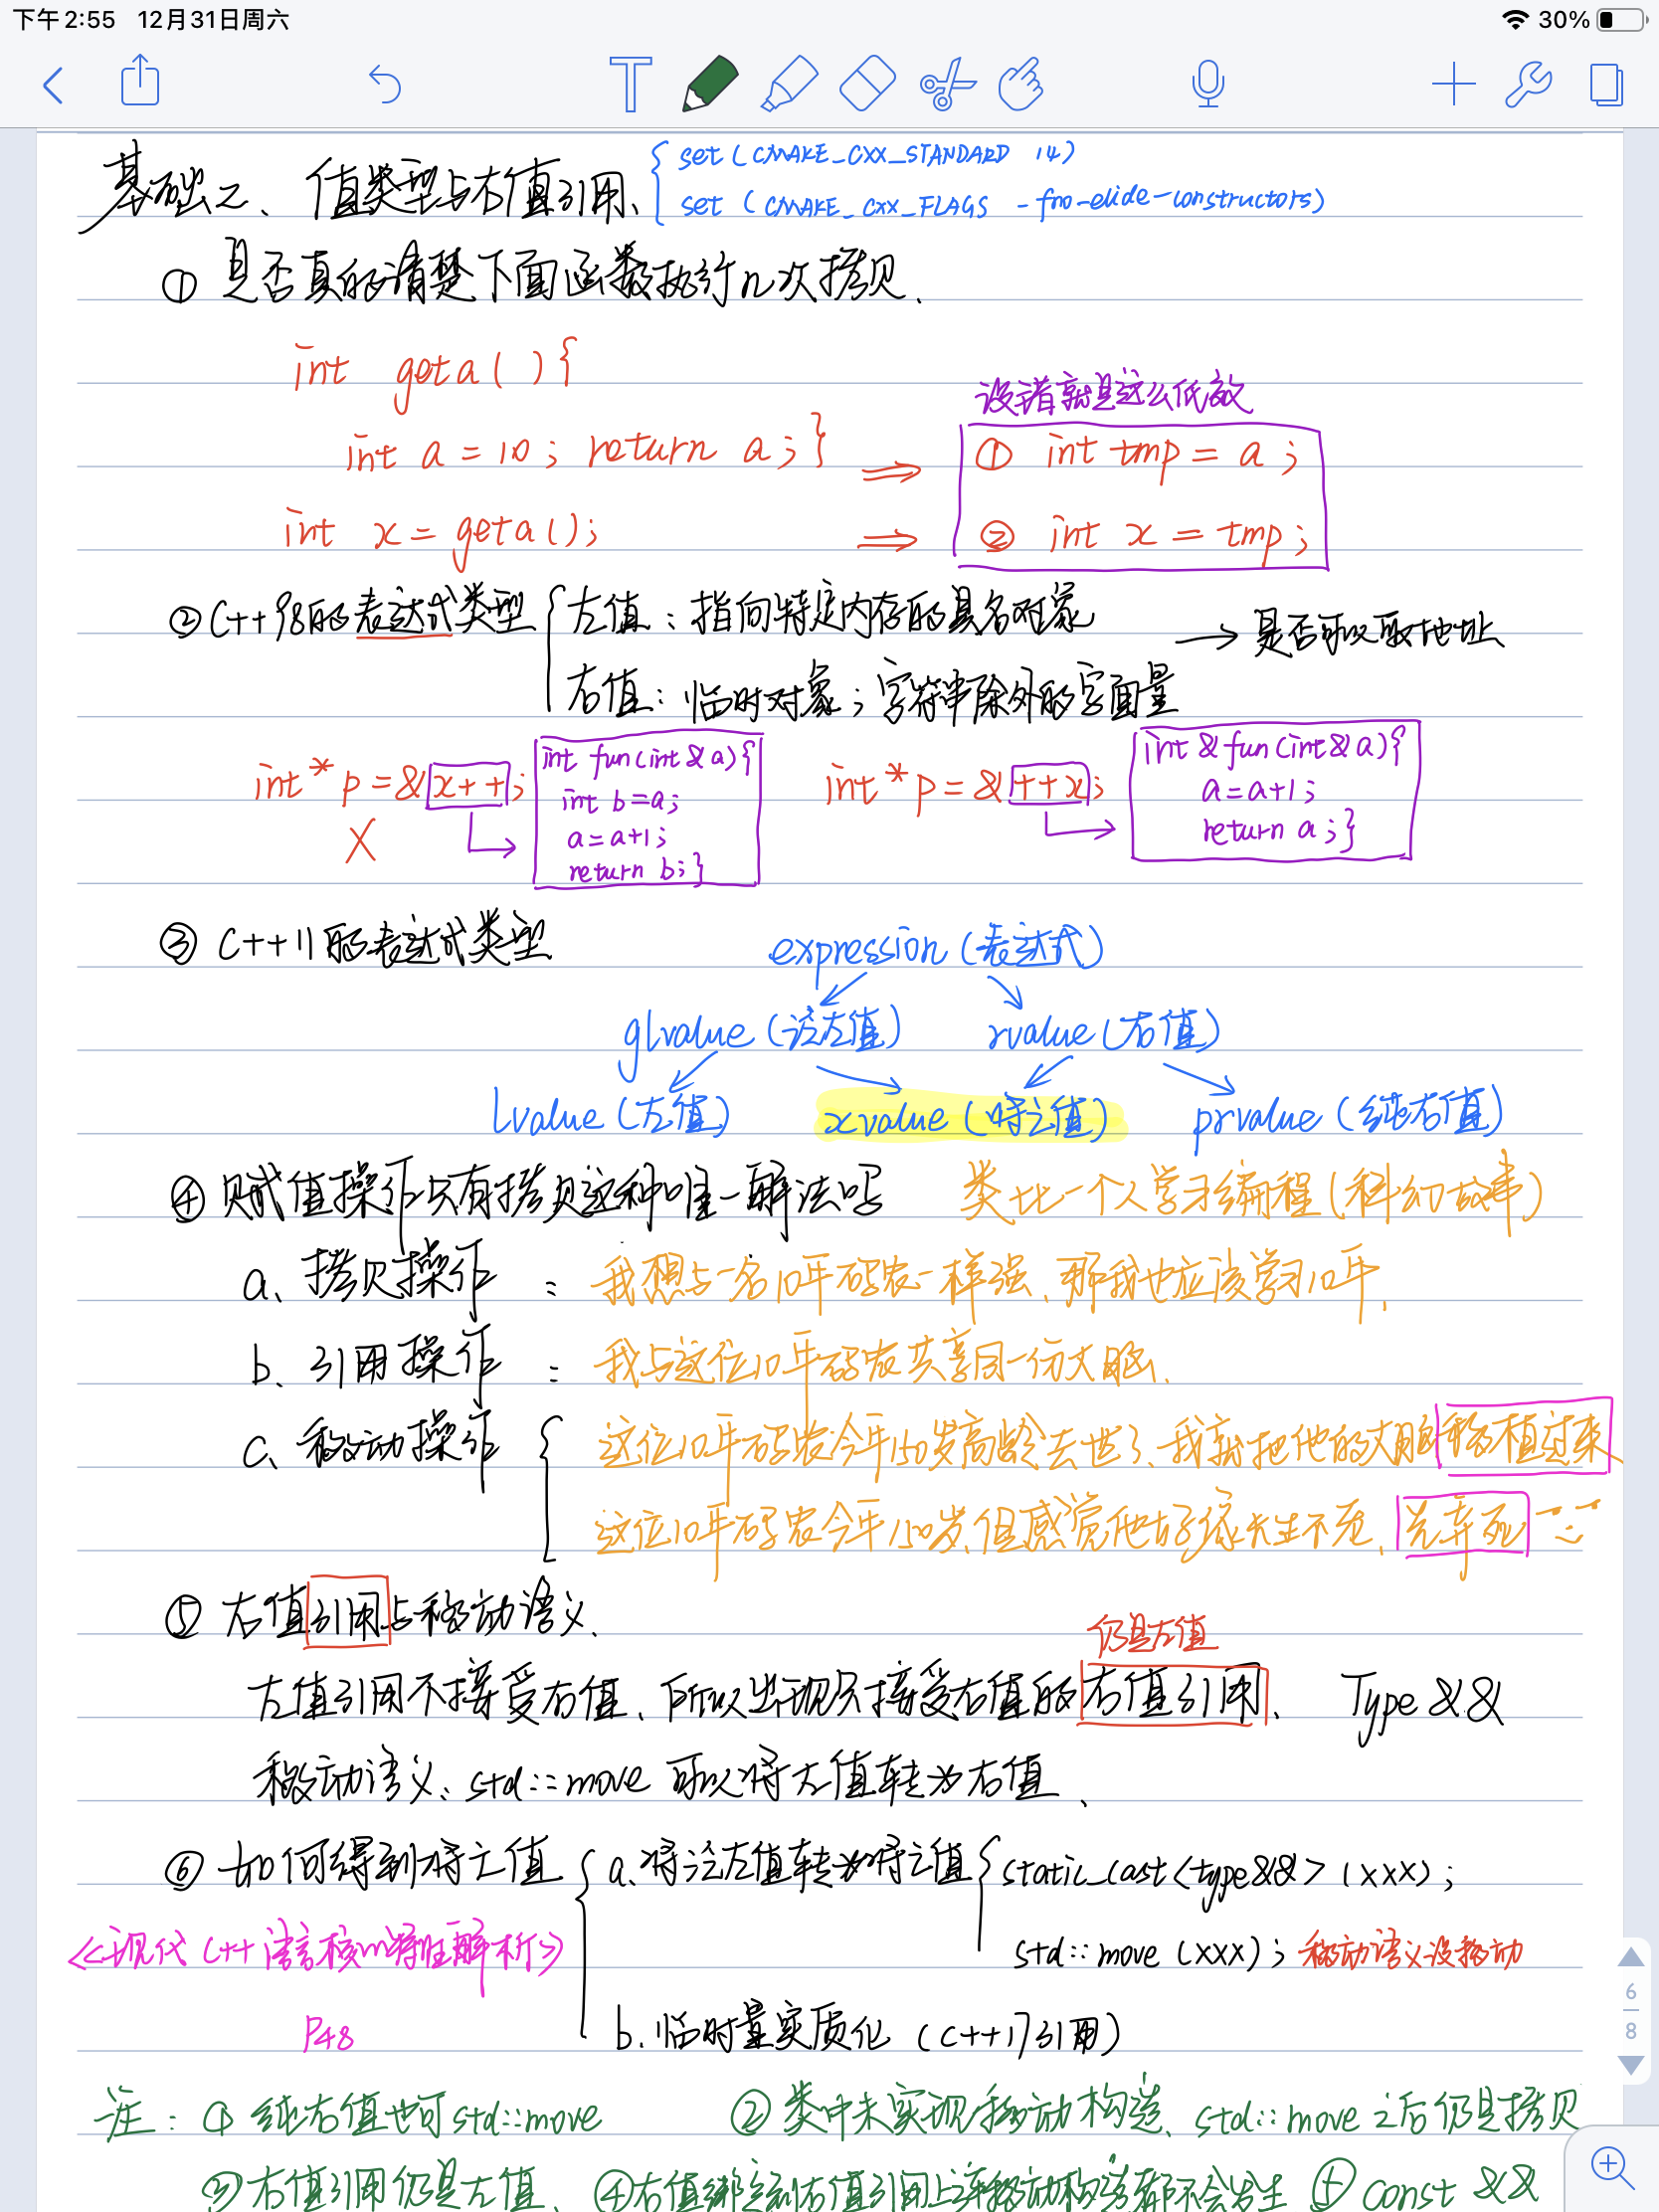 下午2:55 12月31日周六 30%
基础二、值类型与右值引用、
set (CMAKE_CXX_STANDARD 14)
set (CMAKE_CXX_FLAGS -fno-elide-constructors)
① 是否真的清楚下面函数执行几次拷贝.
int geta( ){
int a = 10; return a; }
int x = geta();
没错就是这么低效
⇒ ① int tmp = a;
⇒ ② int x = tmp;
② C++98的表达式类型
左值：指向特定内存的具名对象
右值：临时对象；字符串除外的字面量
→ 是否可以取地址
int* p = &x++; X
int fun(int & a){
int b = a;
a = a+1;
return b; }
int* p = &++x;
int & fun(int & a){
a = a+1;
return a; }
③ C++11的表达式类型
expression (表达式)
glvalue (泛左值) rvalue (右值)
Lvalue (左值) xvalue (将亡值) prvalue (纯右值)
④ 赋值操作只有拷贝这种唯一解法吗 类比一个人学习编程(科幻故事)
a、拷贝操作 : 我想与一名10年码农一样强、那我也应该学习10年.
b、引用操作 : 我与这位10年码农共享同一份大脑.
c、移动操作 这位10年码农今年150岁高龄去世了、我就把他的大脑移植过来
这位10年码农今年150岁,但感觉他好像长生不老、先弃死
⑤ 右值引用与移动语义.
仍是左值
左值引用不接受右值、所以出现只接受右值的右值引用. Type &&
移动语义、std::move 可以将左值转为右值、
⑥ 如何得到将亡值 a.将泛左值转为将亡值 static_cast<type&&> (xxx);
《现代C++语言核心特性解析》 std::move (xxx); 移动语义没移动
P48 b.临时量实质化 (C++17引用)
6
8
注：① 纯右值也可std::move ② 类中未实现移动构造、std::move 之后仍是拷贝
③右值引用仍是左值、④右值绑定到右值引用上连移动构造都不会发生 ⑤ const &&